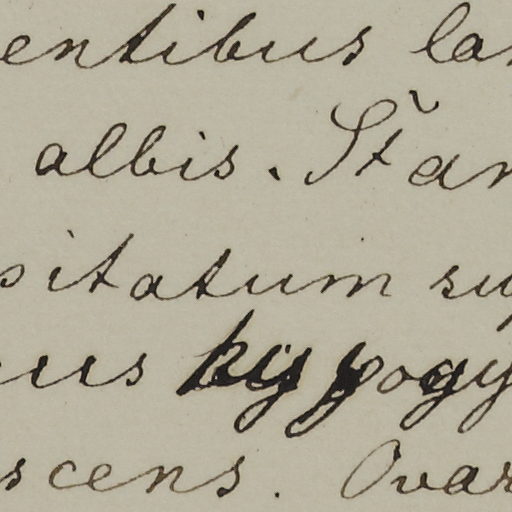 entibus la
albis. Stam
sitatum su
us hypogy
scens. Ovar